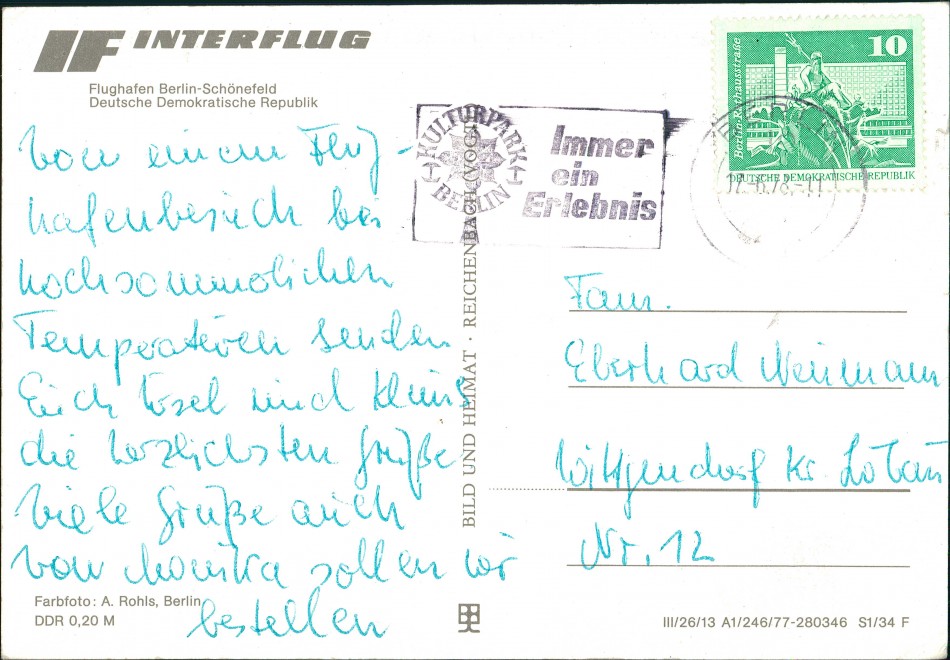 IF INTERFLUG
Flughafen Berlin-Schönefeld
Deutsche Demokratische Republik
Von einem Flug-
hafenbesuch bei
hochsommerlichen
Temperaturen senden
Euch Ursel und Klaus
die herzlichsten Grüße
Viele Grüße auch
von Monika sollen wir
bestellen
Farbfoto: A. Rohls, Berlin
DDR 0,20 M
BILD UND HEIMAT · REICHENBACH (VOGTL)
KULTURPARK
BERLIN
Immer
ein
Erlebnis
10
Berlin Rathausstraße
DEUTSCHE DEMOKRATISCHE REPUBLIK
Fam.
Eberhard Neumann
Wittgendorf Kr. Löbau
Nr. 12
III/26/13 A1/246/77-280346 S1/34 F